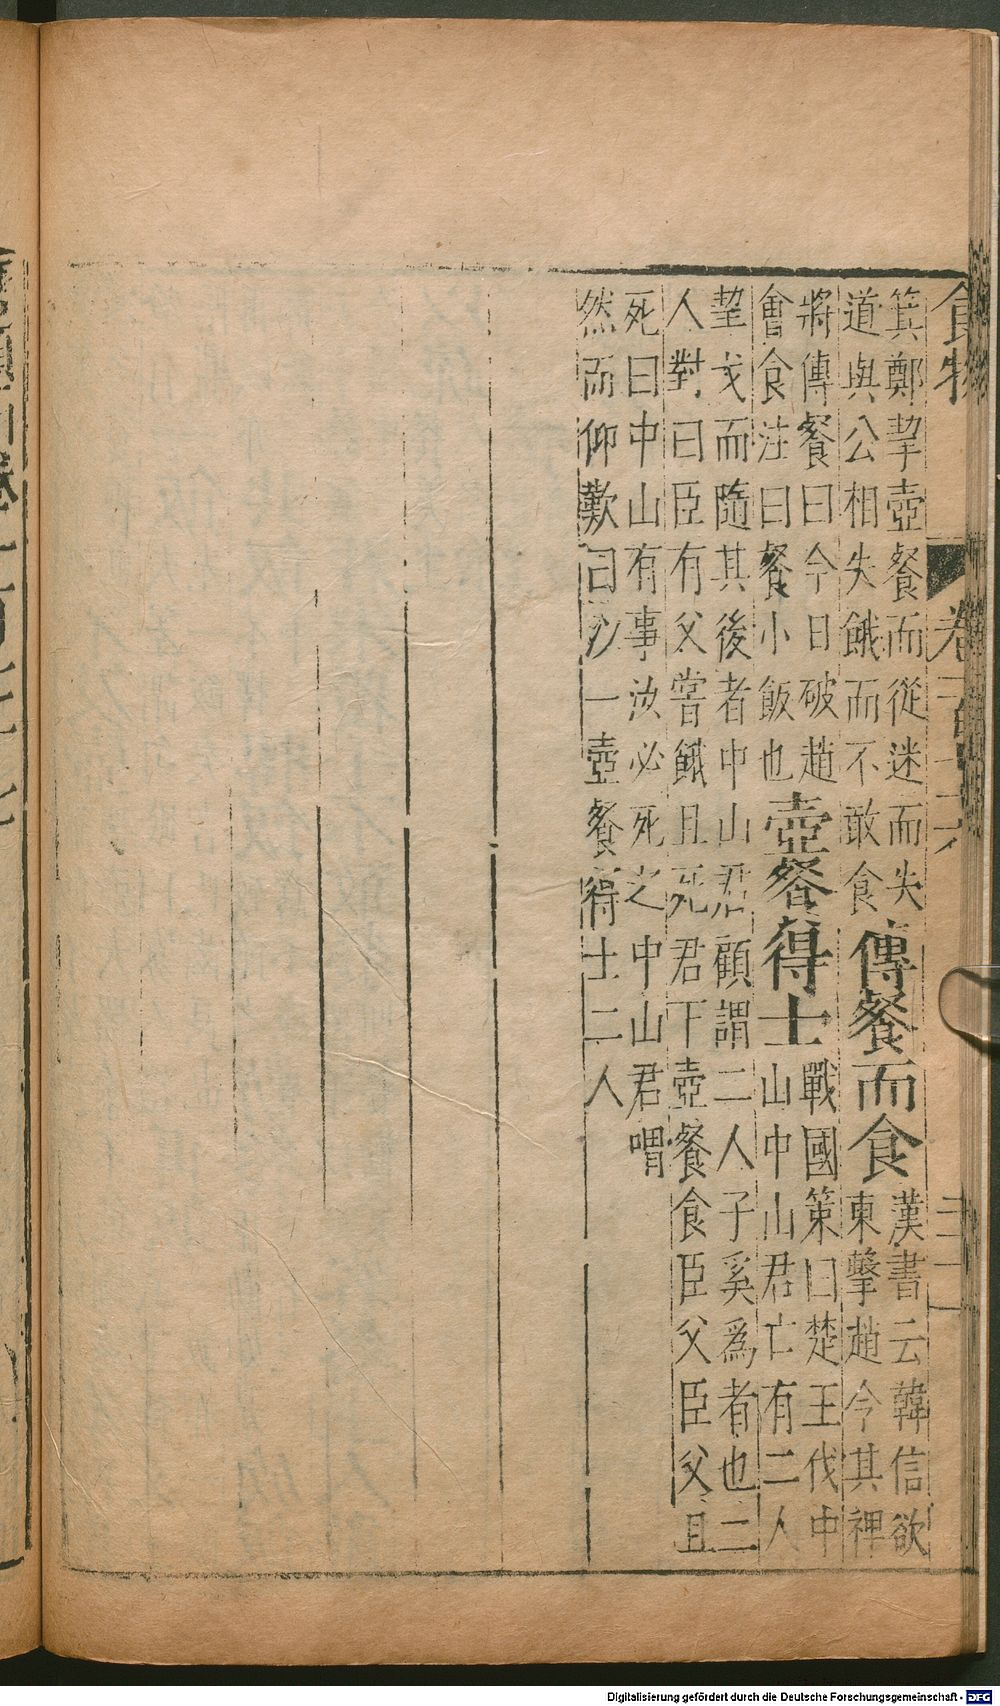 食物
卷二百七十六
三十一
箕鄭挈壺餐而從迷而失
道與公相失餓而不敢食
傳餐而食
漢書云韓信欲
東擊趙令其裨
將傳餐曰今日破趙
會食注曰餐小飯也
壺餐得士
戰國策曰楚王伐中
山中山君亡有二人
挈戈而隨其後者中山君顧謂二人子奚爲者也二
人對曰臣有父嘗餓且死君下壺餐食臣父臣父且
死曰中山有事汝必死之中山君喟
然而仰歎曰以一壺餐得士二人
Digitalisierung gefördert durch die Deutsche Forschungsgemeinschaft - DFG